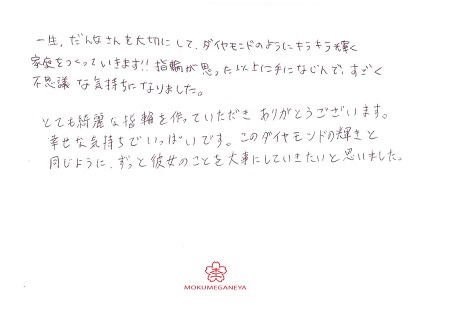 一生、だんなさんを大切にして、ダイヤモンドのようにキラキラ輝く
家庭をつくっていきます!! 指輪が思った以上に手になじんで、すごく
不思議な気持ちになりました。
とても綺麗な指輪を作っていただき ありがとうございます。
幸せな気持ちでいっぱいです。このダイヤモンドの輝きと
同じように、ずっと彼女のことを大事にしていきたいと思いました。
MOKUMEGANEYA